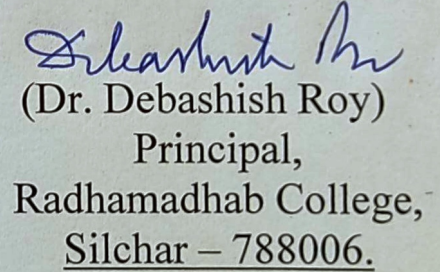 Debashish Roy
(Dr. Debashish Roy)
Principal,
Radhamadhab College,
Silchar – 788006.